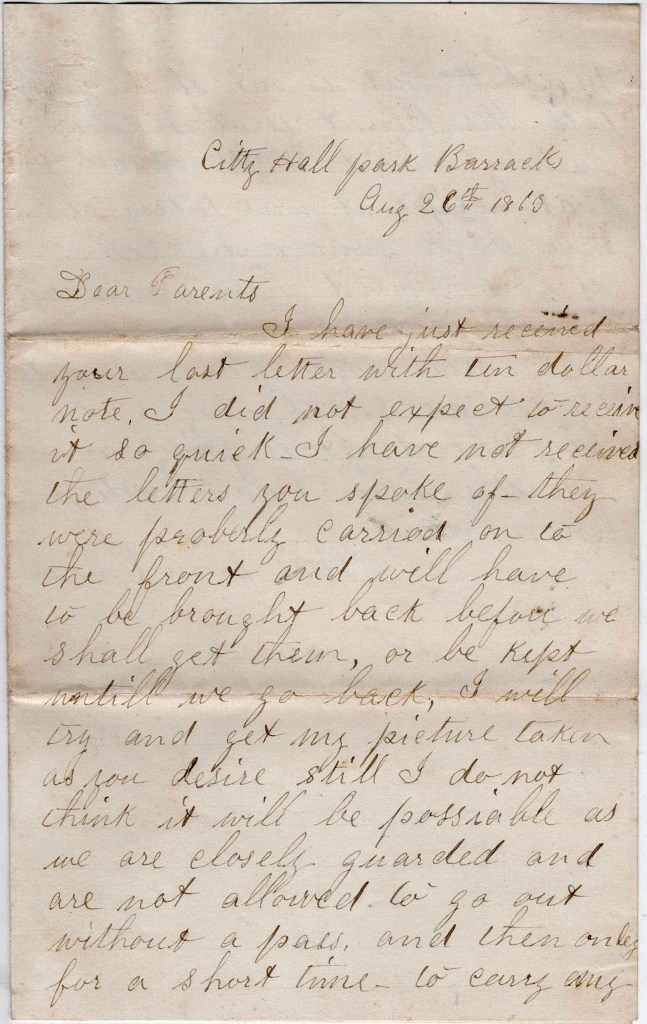 Citty Hall park Barrack
Aug 26th 1863
Dear Parents
I have just received
your last letter with tin dollar
note. I did not expect to receive
it so quick - I have not received
the letters you spoke of - they
were proberly carried on to
the front and will have
to be brought back before we
shall get them, or be kept
untill we go back, I will
try and get my picture taken
as you desire still I do not
think it will be possiable as
we are closely guarded and
are not allowed to go out
without a pass, and then onley
for a short time - to carry any